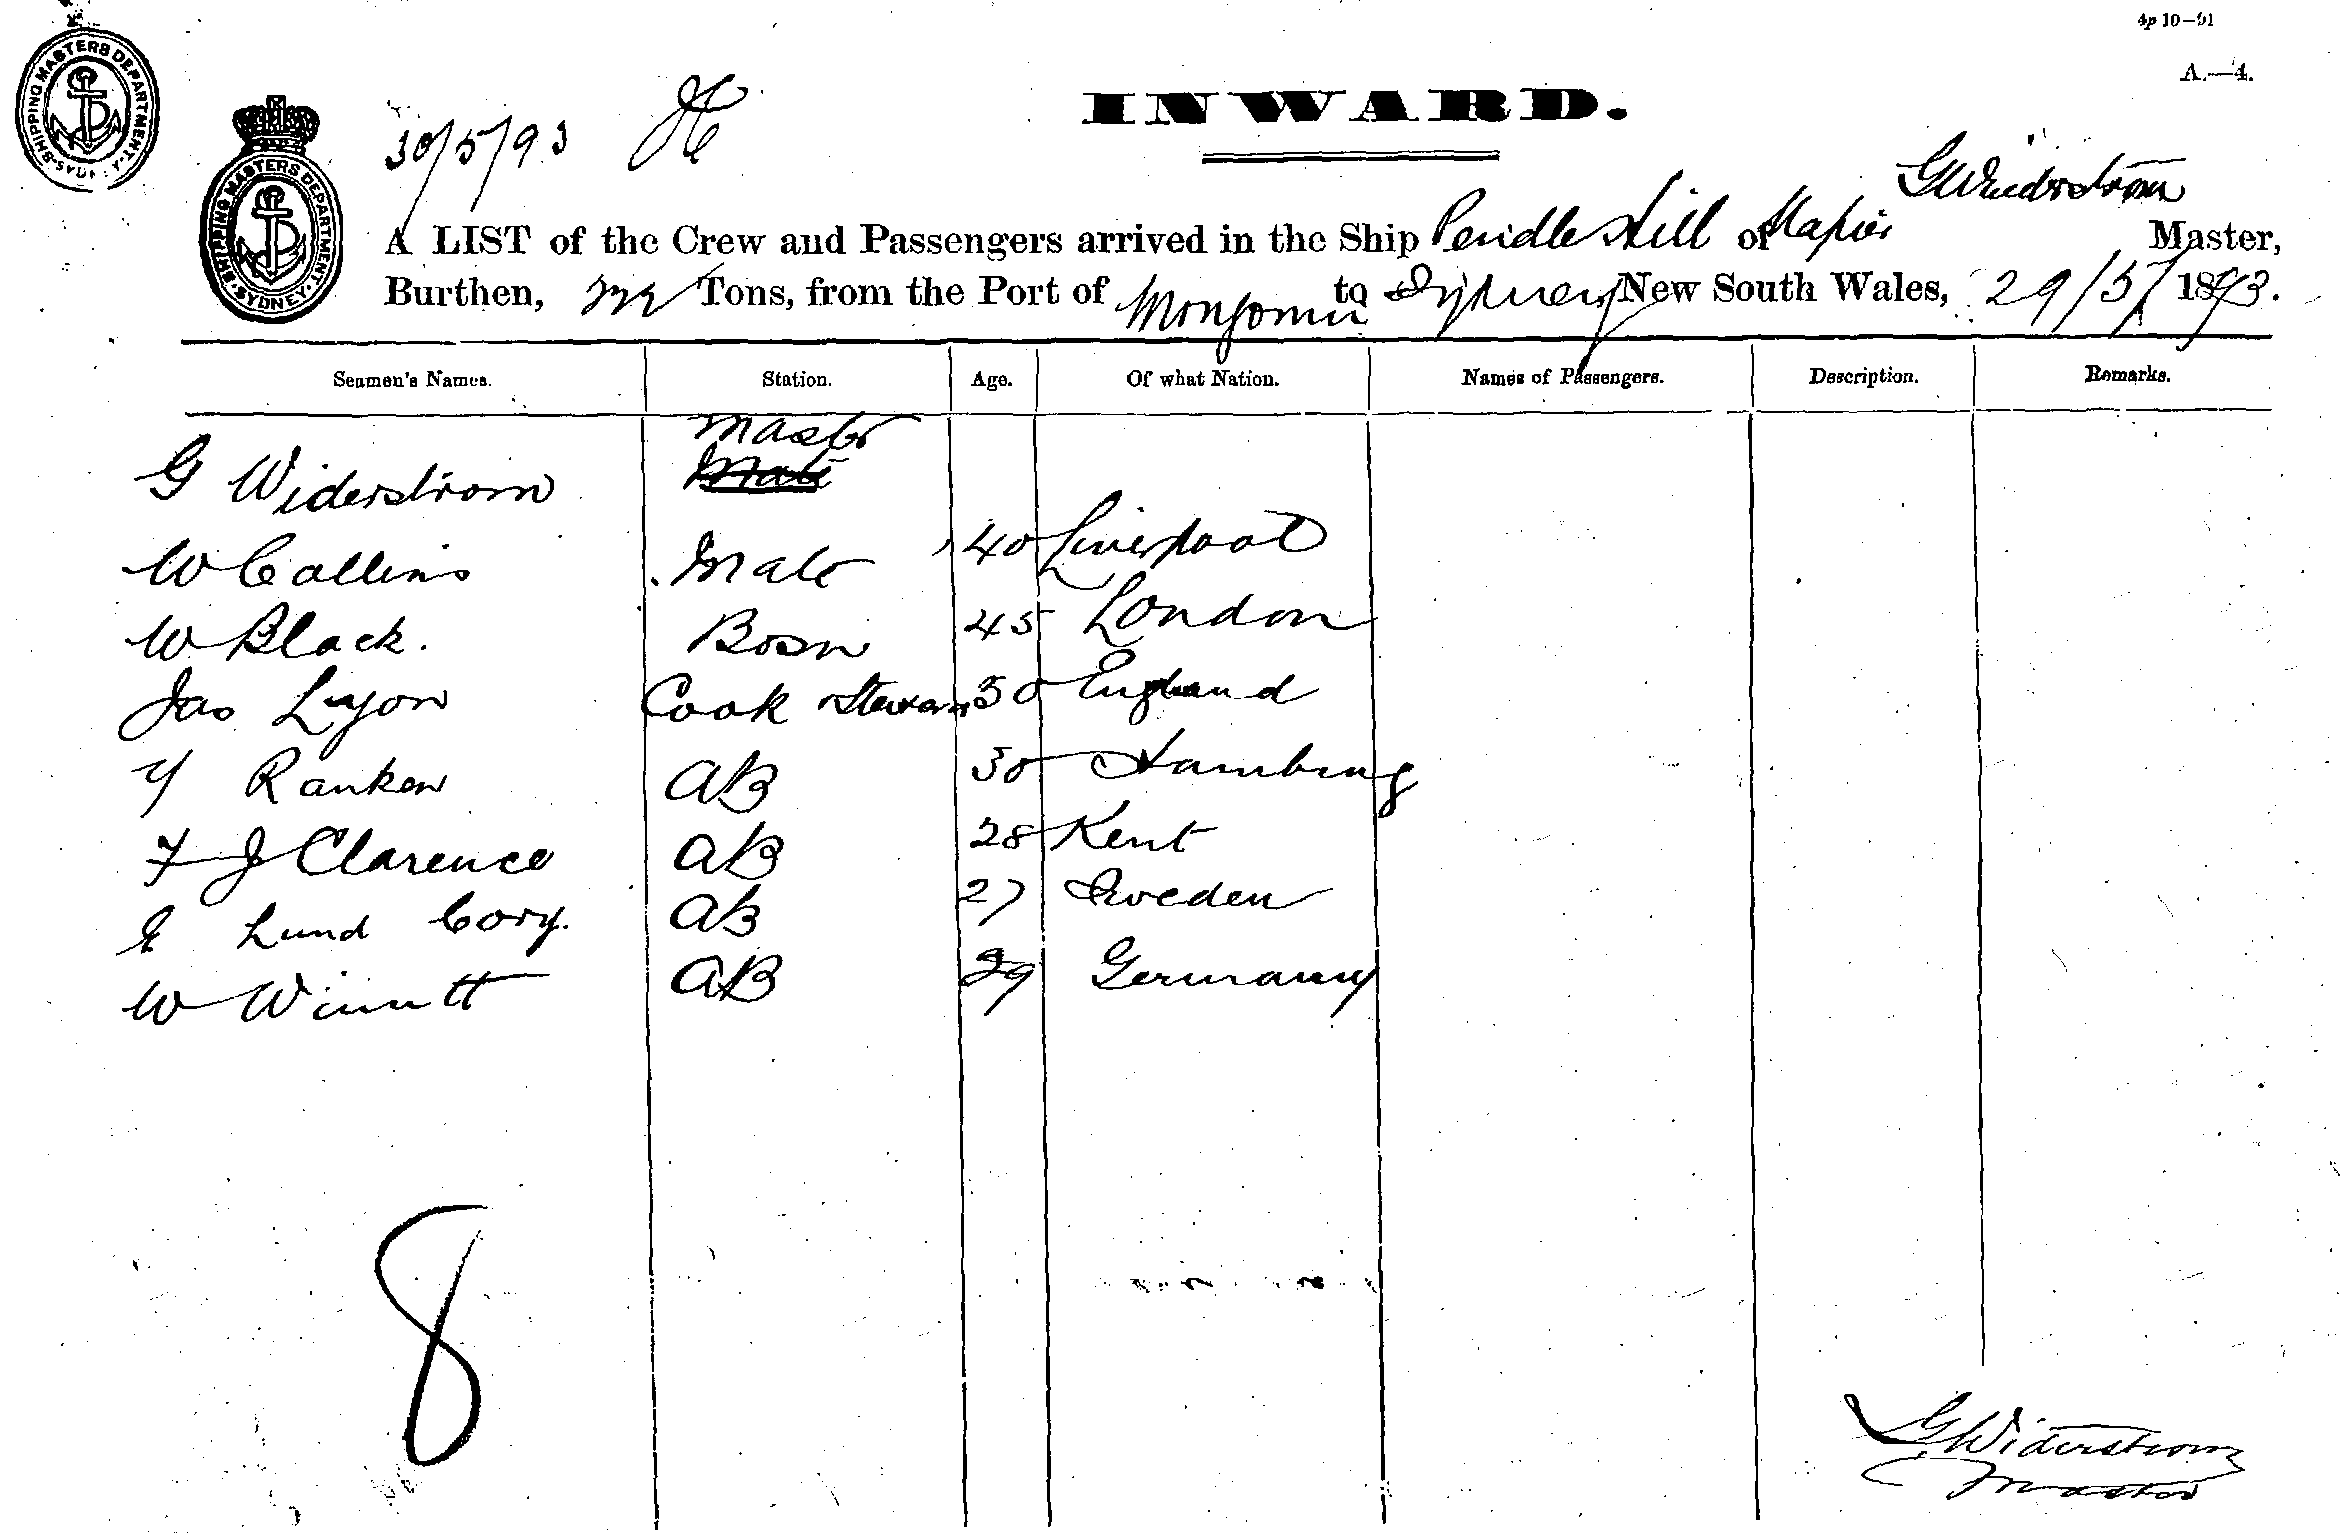 4p 10—91
A.—4.
SHIPPING MASTERS DEPARTMENT
SHIPPING MASTERS DEPARTMENT. SYDNEY.
30/5/93
INWARD.
G Widerstrom
A LIST of the Crew and Passengers arrived in the Ship Pendle Hill of Napier Master,
Burthen, Tons, from the Port of to Sydney New South Wales, 29/5/1893.
Seamen's Names. Station. Age. Of what Nation. Names of Passengers. Description. Remarks.
Master
G Widerstrom Mate
W Collins Mate 40 Liverpool
W Black. Bosn 45 London
Jas Lyon Cook Steward 30 England
Ranken AB 30 Hamburg
F J Clarence AB 28 Kent
Lund Cory. AB 27 Sweden
W AB 29 Germany
8
G Widerstrom
Master